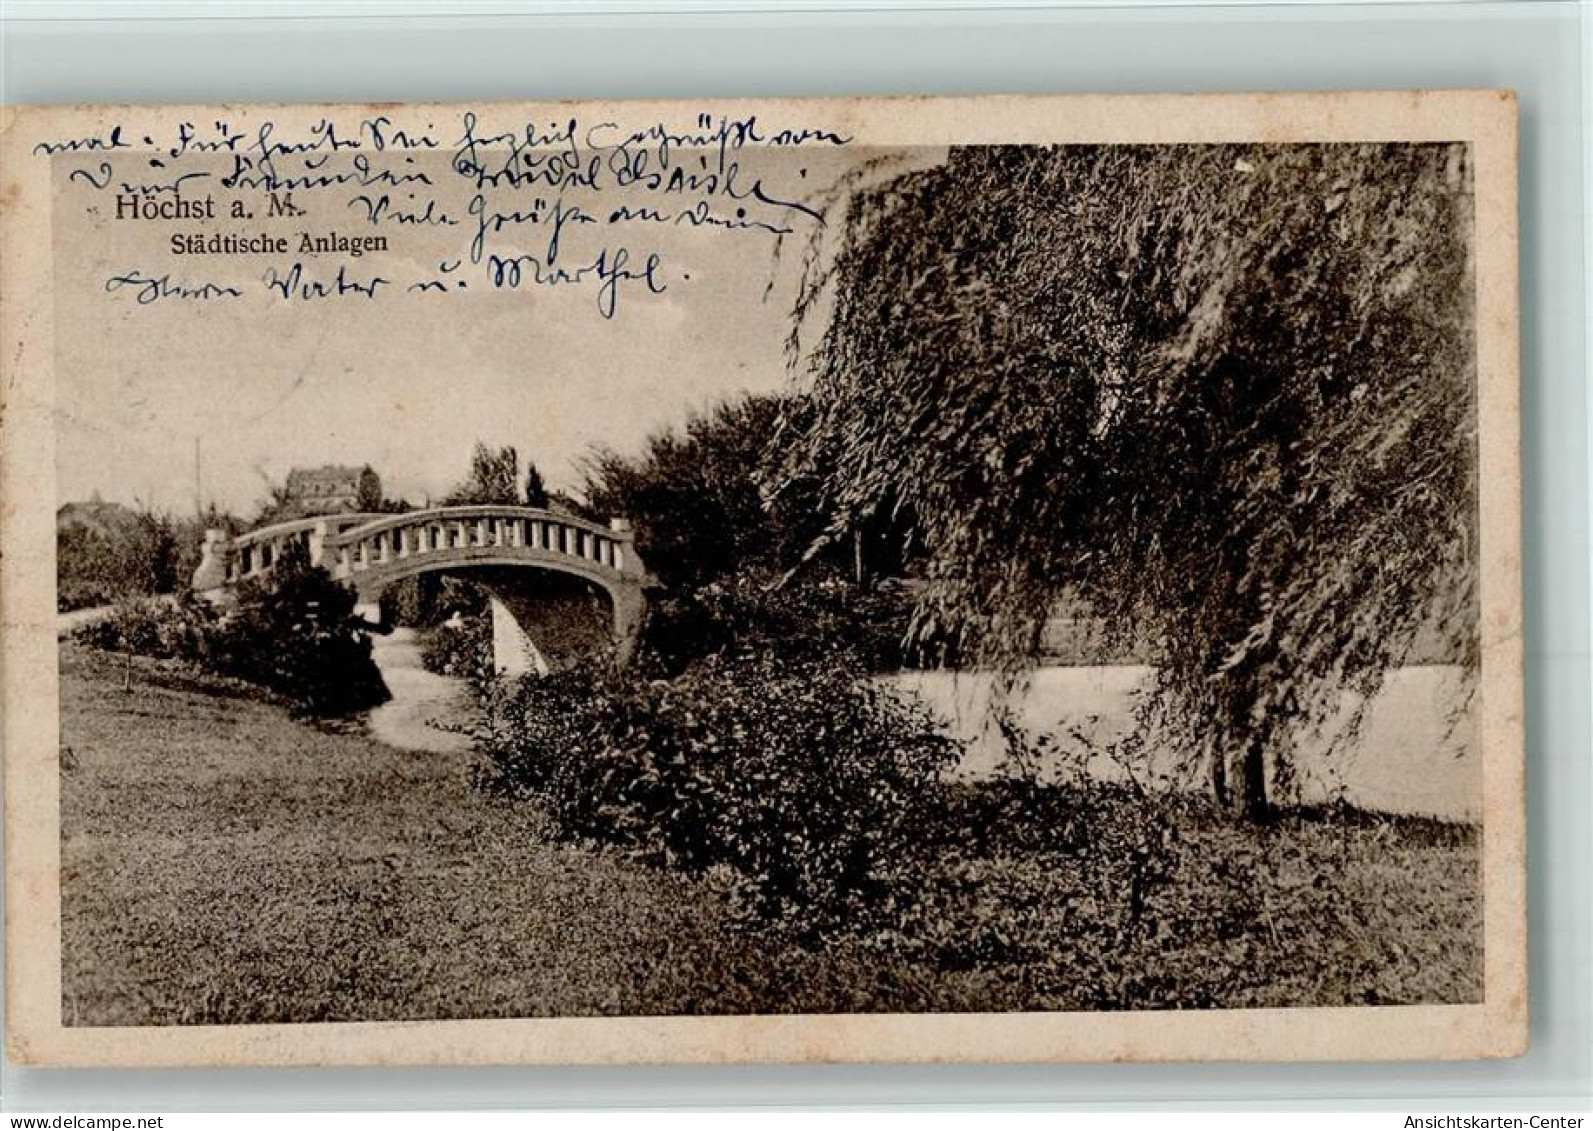 mal. Für heute Sei herzlich gegrüßt von
Deiner Freundin Trudel
Höchst a. M.
Viele Grüße an Deine
Städtische Anlagen
Eltern Vater u. Marthel.
delcampe.net
Ansichtskarten-Center